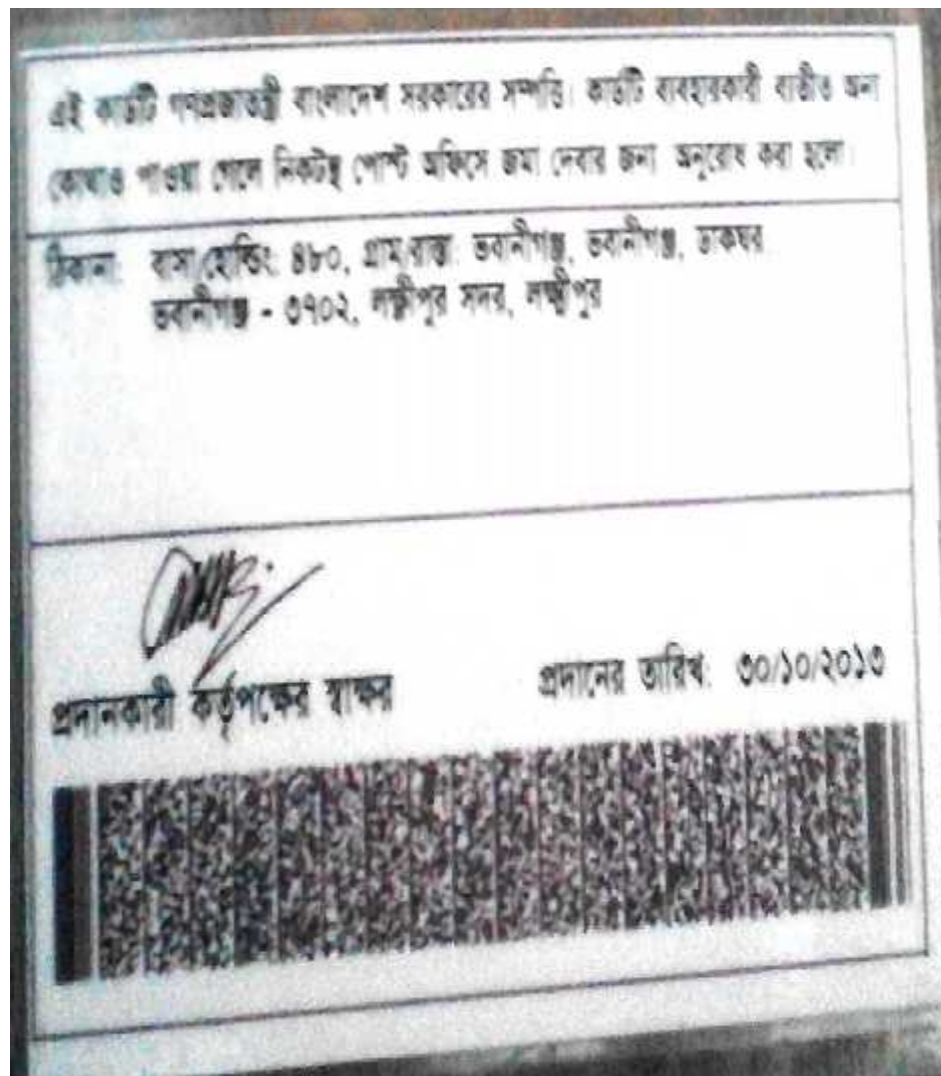 এই কার্ডটি গণপ্রজাতন্ত্রী বাংলাদেশ সরকারের সম্পত্তি। কার্ডটি ব্যবহারকারী ব্যতীত অন্য
কোথাও পাওয়া গেলে নিকটস্থ পোস্ট অফিসে জমা দেবার জন্য অনুরোধ করা হলো।
ঠিকানা: বাসা/হোল্ডিং: ৪৮০, গ্রাম/রাস্তা: ভবানীগঞ্জ, ভবানীগঞ্জ, ডাকঘর:
ভবানীগঞ্জ - ৩৭০২, লক্ষ্মীপুর সদর, লক্ষ্মীপুর
প্রদানকারী কর্তৃপক্ষের স্বাক্ষর প্রদানের তারিখ: ৩০/১০/২০১৩